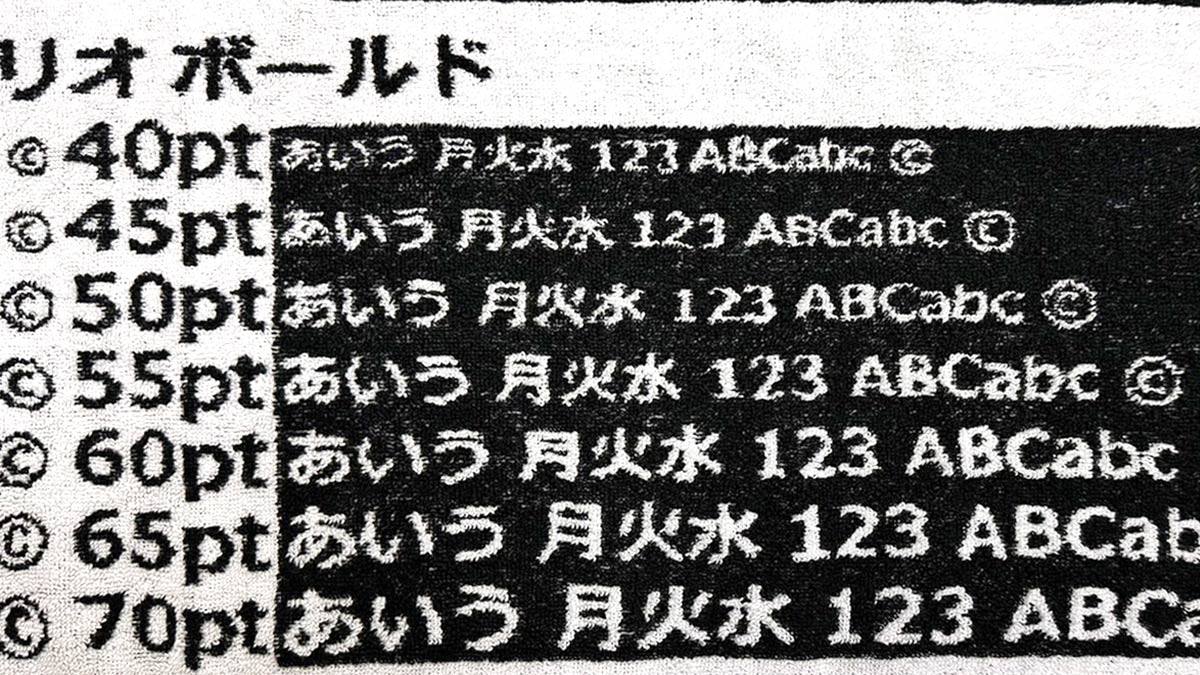 リオ ボールド
© 40pt あいう 月火水 123 ABCabc ©
© 45pt あいう 月火水 123 ABCabc ©
© 50pt あいう 月火水 123 ABCabc ©
© 55pt あいう 月火水 123 ABCabc ©
© 60pt あいう 月火水 123 ABCabc
© 65pt あいう 月火水 123 ABCab
© 70pt あいう 月火水 123 ABCa